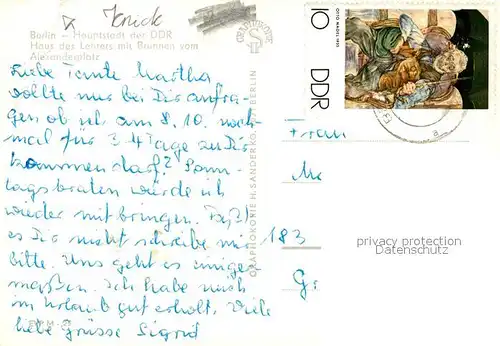 Krück
Berlin – Hauptstadt der DDR
Haus des Lehrers mit Brunnen vom
Alexanderplatz
Liebe Tante Martha
wollte nur bei Dir anfra-
gen ob ich am 8.10. noch-
mal für 3-4 Tage zu Dir
kommen darf? Sonn-
tagsbraten würde ich
wieder mit bringen. Paßt
es Dir nicht schreibe mir
bitte. Uns geht es einiger
maßen. Ich habe mich
im Urlaub gut erholt. Viele
liebe Grüsse Sigrid
GRAPHOKOPIE H. SANDER KG, BERLIN
OTTO NAGEL
10 DDR
Frau
183
privacy protection
Datenschutz
G: